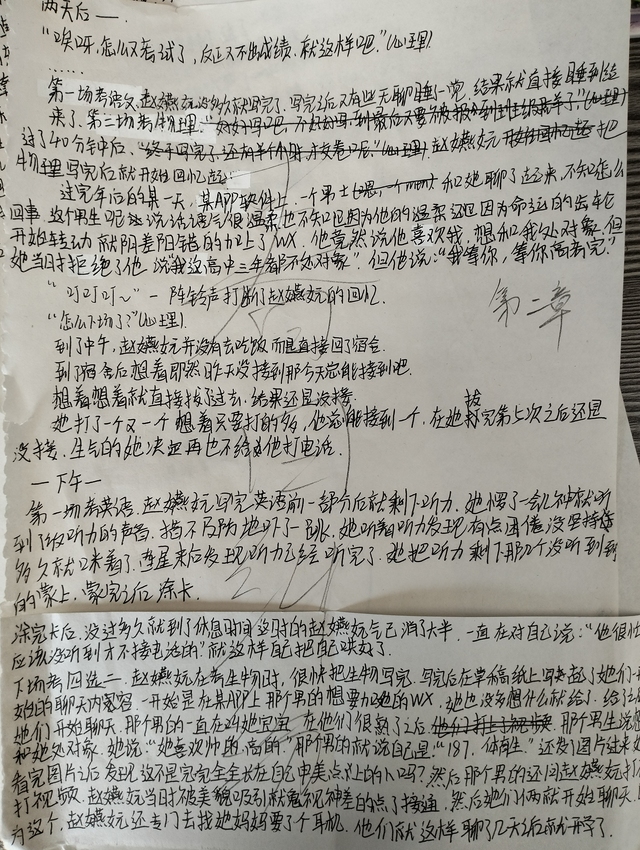 两天后一.
“唉呀,怎么又考试了,反正又不出成绩.就这样吧.”(心理)
……
第一场考语文,赵嬿妧没多久就写完了.写完之后又有些无聊睡一觉,结果就直接睡到结
来了.第二场考物理.
过了40分钟后,“终于写完了,还有半个小时才交卷呢.”(心理).赵嬿妧 把
物理写完后就开始回忆起
过完年后的某一天,某APP软件上,一个男士 和她聊了起来,不知怎么
回事,这个男生呢说话语气很温柔也不知是因为他的温柔还是因为命运的齿轮
开始转动 就阴差阳错的加上了WX.他竟然说他喜欢我,想和我处对象,但
她当时拒绝了他 说“我这高中三年都不处对象”.但他说:“我等你,等你高考完.”
“叮叮叮~”一阵铃声打断了赵嬿妧的回忆.
第二章
“怎么下场了?”(心理)
到了中午,赵嬿妧并没有去吃饭而是直接回了宿舍.
到了宿舍后想着即然昨天没接到那今天总能接到吧.
想着想着就直接找了过去,结果还是没接.
她打了一个又一个 想着只要打的多,他总能接到一个,在她拨完第七次之后还是
没接,生气的她决定再也不给他打电话.
—下午—
第一场考英语,赵嬿妧写完英语前一部分后就剩下听力.她愣了一会儿神就听
到了放听力的声音.措不及防地吓了一跳,她听着听力发现有点困倦没坚持
多久就睡着了.等醒来后发现听力已经听完了.她把听力剩下那几个没听到
的蒙上,蒙完之后涂卡.
涂完卡后,没过多久就到了休息时间这时的赵嬿妧气已消了大半,一直在对自己说:“他很忙
应该没听到才不接电话的”就这样自己把自己哄好了.
下场考四选二.赵嬿妧在考生物时,很快把生物写完.写完后在草稿纸上写起了她们
始的聊天内容.一开始是在某APP上那个男的想要加她的WX,她也没多想什么就给了.给
她们开始聊天.那个男的一直在叫她宝宝,在他们很熟了之后 那个男生说想
和她处对象.她说:“她喜欢帅的,高的.”那个男的就说自己是:“187,体育生.”还发了图片过来
看完图片之后发现这不是完完全全长在自己审美点上的人吗?然后那个男的还问赵嬿妧打
打视频.赵嬿妧当时被美貌吸引就鬼视神差的点了接通,然后她们俩就开始聊天.
为这个,赵嬿妧还专门去找她妈妈要了个耳机.他们就这样聊了几天后就开学了.